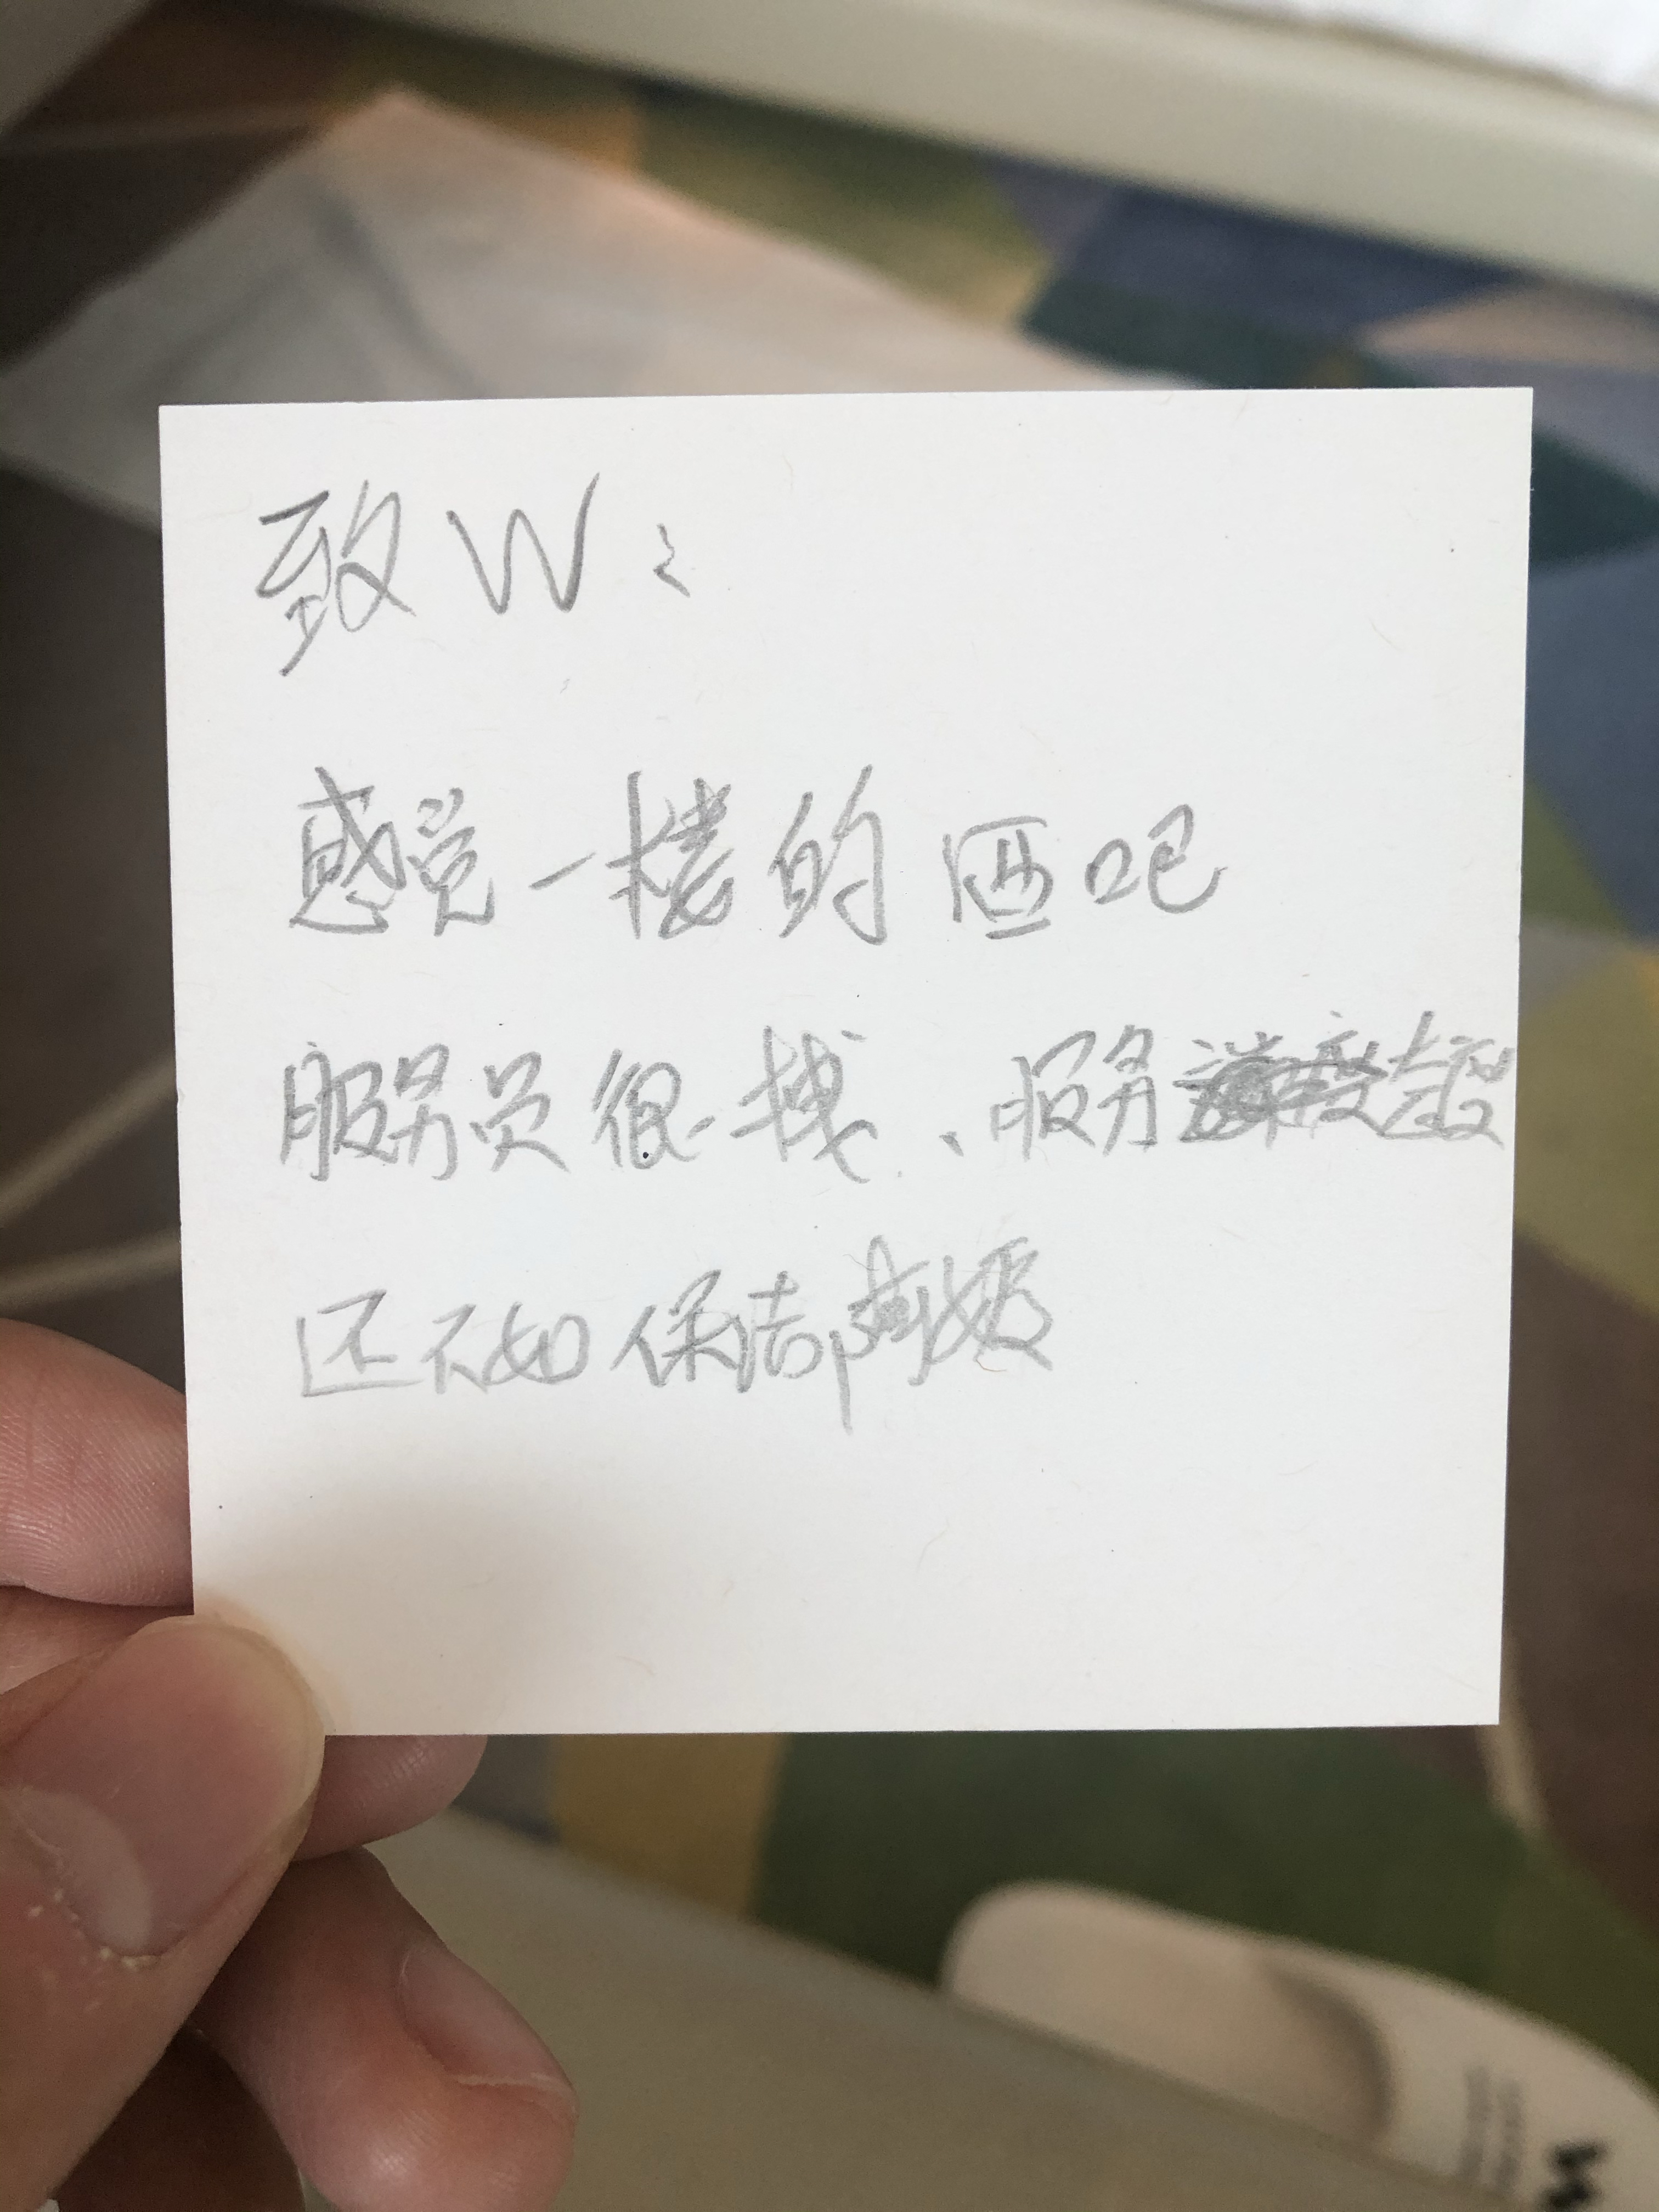 致W:
感觉一楼的酒吧
服务员很拽、服务态度
还不如保洁阿姨